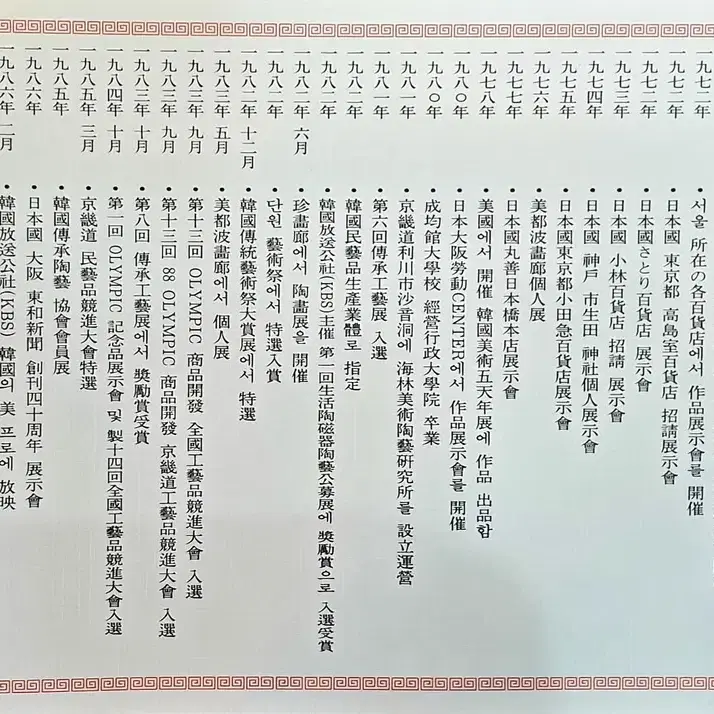 一九七二年 • 서울 所在의 各百貨店에서 作品展示會를 開催
一九七二年 • 日本國 東京都 高島室百貨店 招請展示會
一九七二年 • 日本國 さとり百貨店 展示會
一九七三年 • 日本國 小林百貨店 招請 展示會
一九七四年 • 日本國 神戶 市生田 神社個人展示會
一九七五年 • 日本國東京都小田急百貨店展示會
一九七六年 • 美都波畵廊個人展
一九七七年 • 日本國丸善日本橋本店展示會
一九七八年 • 美國에서 開催 韓國美術五天年展에 作品 出品함
一九八〇年 • 日本大阪勞動CENTER에서 作品展示會를 開催
一九八〇年 • 成均館大學校 經營行政大學院 卒業
一九八一年 • 京畿道利川市沙音洞에 海林美術陶藝硏究所를 設立運營
一九八一年 • 第六回傳承工藝展 入選
一九八二年 • 韓國民藝品生産業體로 指定
一九八二年 • 韓國放送公社(KBS)主催 第一回生活陶磁器陶藝公募展에 奬勵賞으로 入選受賞
一九八二年 六月 • 珍畵廊에서 陶畵展을 開催
一九八二年 • 단원 藝術祭에서 特選入賞
一九八二年 十二月 • 韓國傳統藝術祭大賞展에서 特選
一九八三年 五月 • 美都波畵廊에서 個人展
一九八三年 九月 • 第十三回 OLYMPIC 商品開發 全國工藝品競進大會 入選
一九八三年 九月 • 第十三回 88 OLYMPIC 商品開發 京畿道工藝品競進大會 入選
一九八三年 十月 • 第八回 傳承工藝展에서 奬勵賞受賞
一九八四年 十月 • 第一回 OLYMPIC 記念品展示會 및 製十四回全國工藝品競進大會入選
一九八五年 三月 • 京畿道 民藝品競進大會特選
一九八五年 • 韓國傳承陶藝 協會會員展
一九八六年 • 日本國 大阪 東和新聞 創刊四十周年 展示會
一九八六年 二月 • 韓國放送公社(KBS) 韓國의 美 프로에 放映